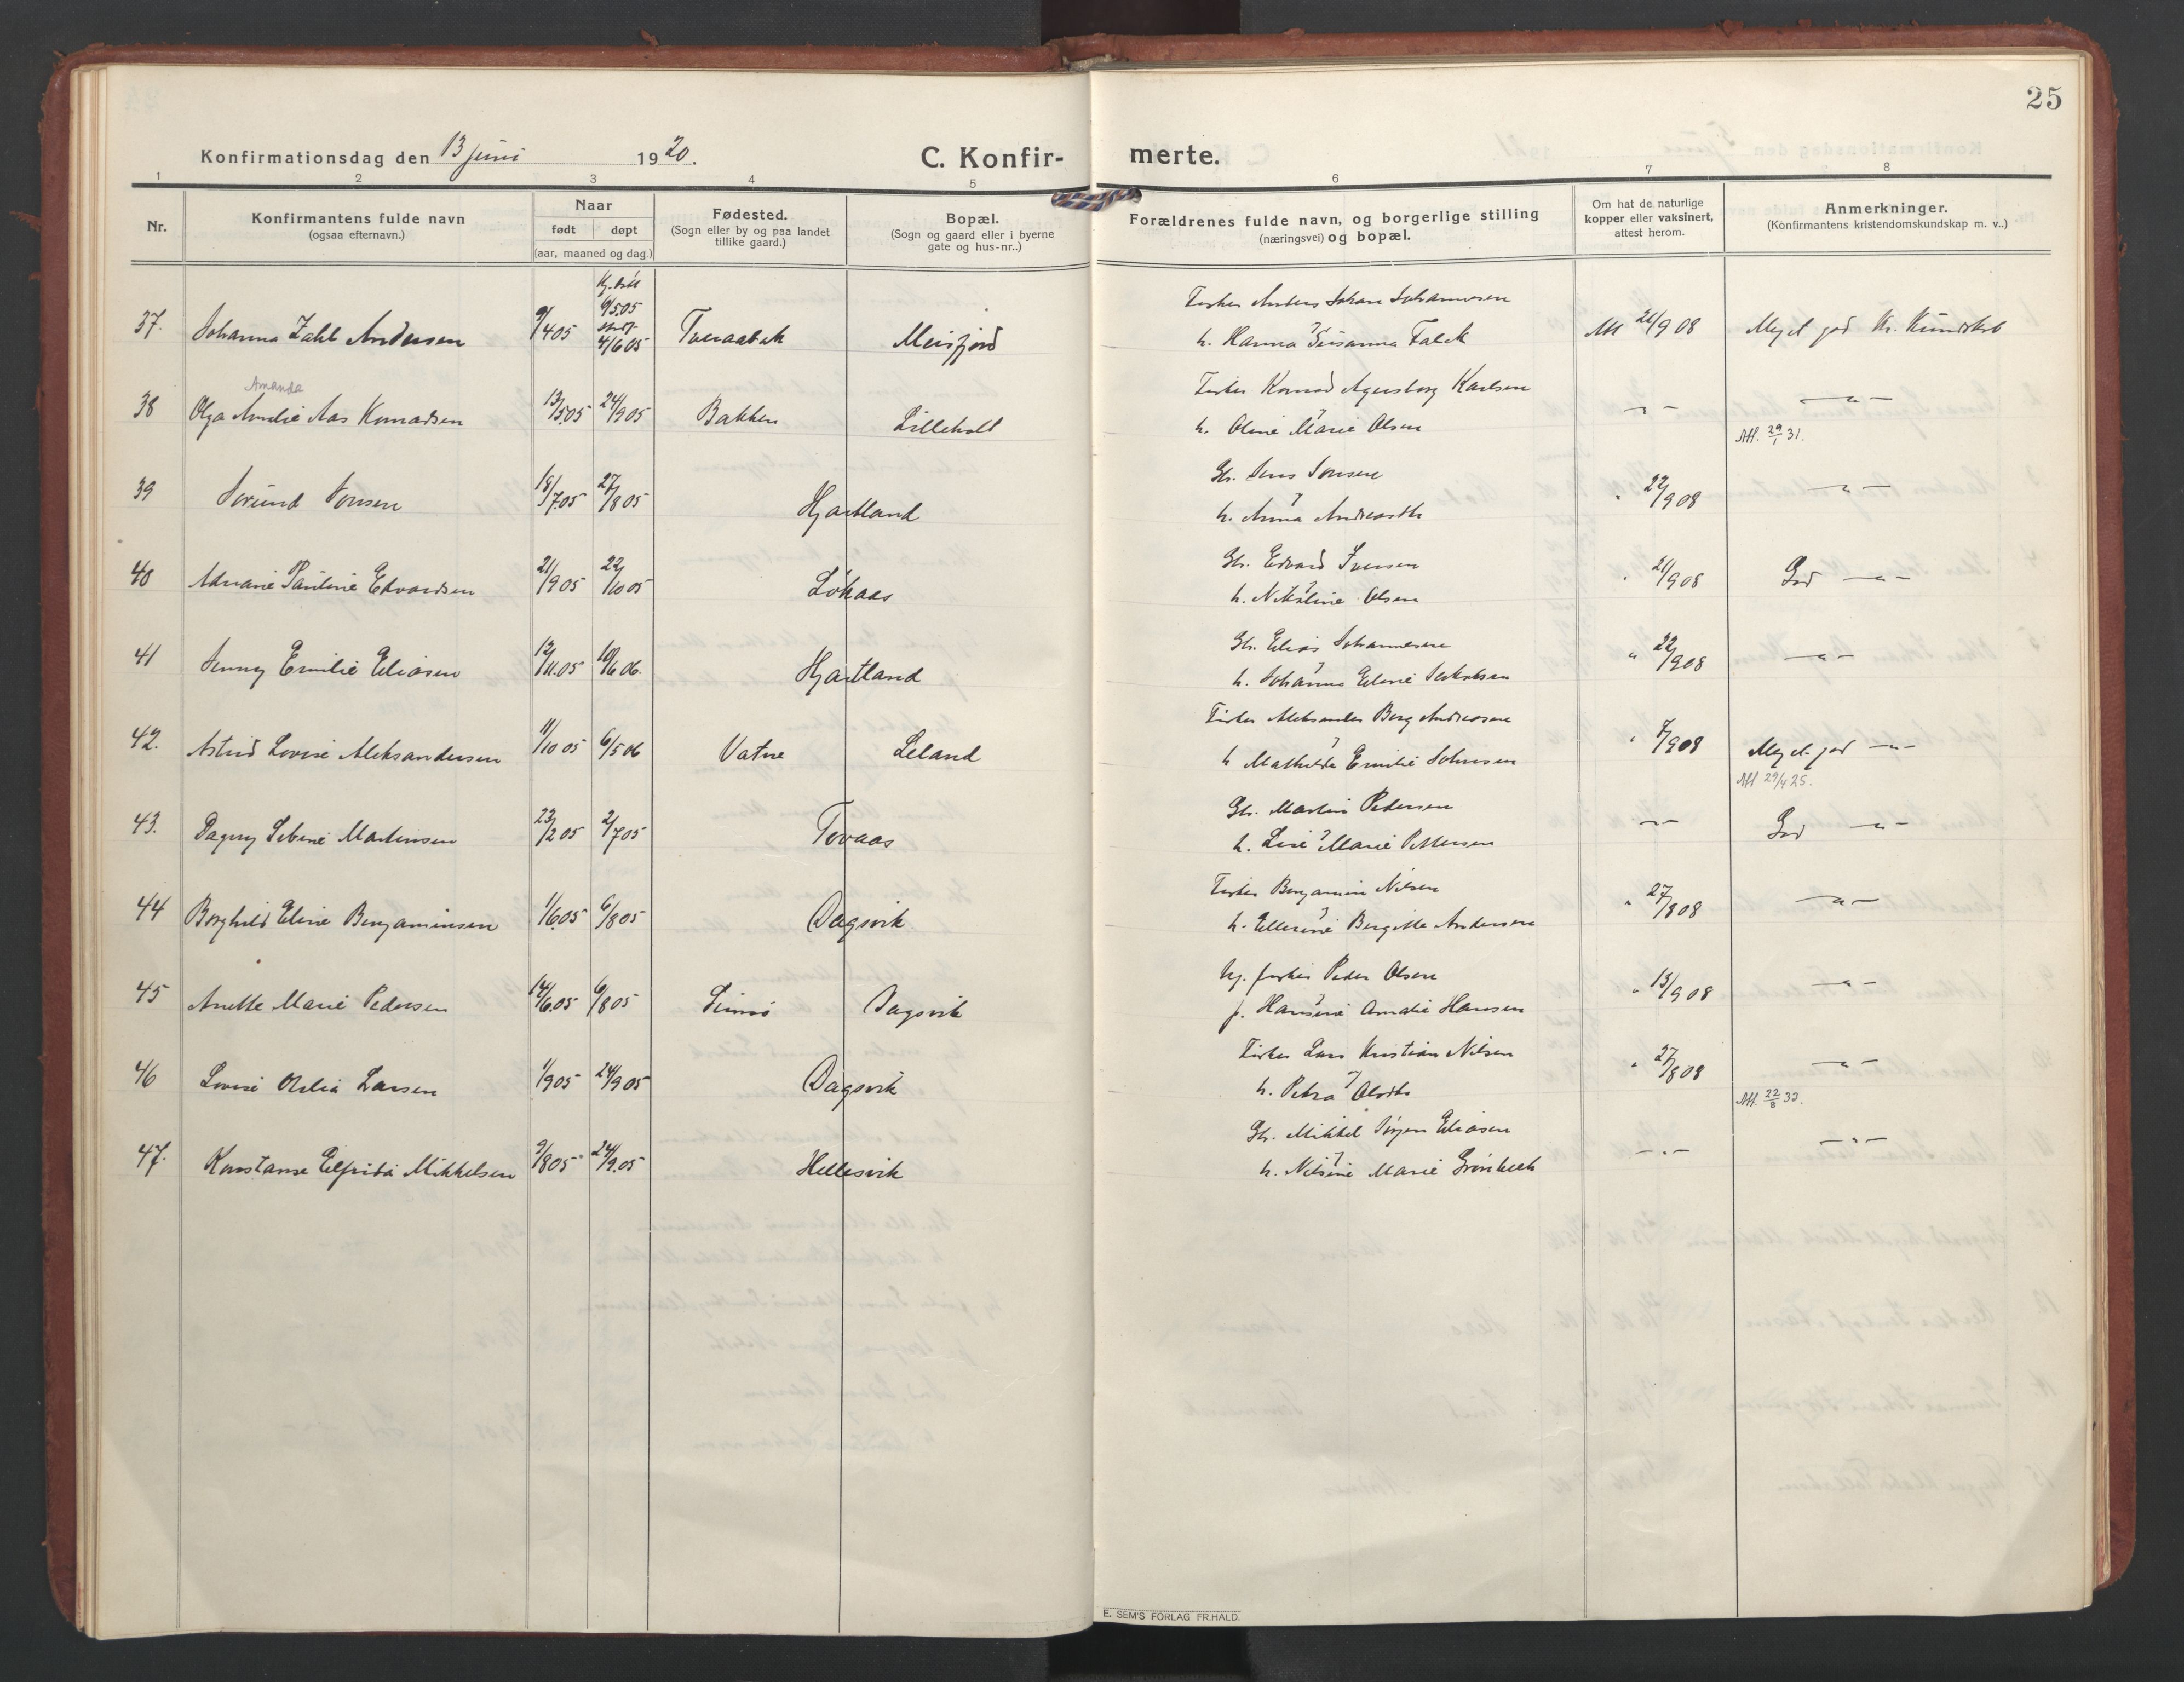 25
Konfirmationsdag den 13 juni 1920. C. Konfir- merte.
1 2 3 4 5 6 7 8
Nr. Konfirmantens fulde navn (ogsaa efternavn.) Naar født døpt (aar, maaned og dag.) Fødested. (Sogn eller by og paa landet tillike gaard.) Bopæl. (Sogn og gaard eller i byerne gate og hus-nr..) Forældrenes fulde navn, og borgerlige stilling (næringsvei) og bopæl. Om hat de naturlige kopper eller vaksinert, attest herom. Anmerkninger. (Konfirmantens kristendomskundskap m. v..)
37. Johanna Zahl Andersen 9/4 05 6/5 05 4/6 05 Meisfjord Fisker Anders Johan Johannesen
h. Hanna Susanna Falck Att 21/9 08 Meget god Kr. Kundskab
Amanda
38 Olga Amalie Aas Konradsen 13/5 05 24/9 05 Bakken Lilleholt Fisker Konrad Agersborg Karlsen
h. Oline Marie Olsen – " – – " –
Att. 29/1 31.
39 Jorund Jonsen 18/7 05 27/8 05 Hjartland Gbr. Jens Jonsen
h. Anna Andreasdtr " 22/9 08 – " –
40 Adriane Pauline Edvardsen 21/9 05 22/10 05 Løkaas Gbr. Edvard Iversen
h. Nikoline Olsen " 21/9 08 God – " –
41 Jenny Emilie Eliasen 12/11. 05 10/6 06. Hjartland Gbr. Elias Johannesen
h. Johanna Eline Jakobsen " 22/9 08 – " –
42. Astrid Lovise Aleksandersen 11/10 05 6/5 06 Vatne Leland Fisker Aleksander Berg Andreasen
h Mathilde Emilie Johnsen " 7/9 08 Meget god – " –
Att 29/4 25.
43. Dagny Sebine Martinsen 23/2 05 2/7 05 Tovaas Gbr. Martin Pedersen
h. Lise Marie Pettersen – " – God – " –
44 Borghild Eline Benjaminsen 1/6. 05 6/8 05 Dagsvik Fisker Benjamin Nilsen
h. Ellerine Bergitte Andersen " 27/8 08 – " –
45 Anette Marie Pedersen 14/6. 05 6/8 05 Dagsvik Ug. fisker Peder Olsen
p. Hansine Amalie Hansen " 13/9 08 – " –
46 Lovise Larsen 1/9 05 24/9 05 Dagsvik Fisker Lars Kristian Nilsen
h. Petra Olsdtr " 27/8 08 – " –
Att. 22/8 33.
47. Konstanse Elfrida Mikkelsen 9/8 05 24/9. 05 Hellesvik Gbr. Mikkel Jørgen Eliasen
h. Nilsine Marie Grønbech – " – – " –
E. SEM'S FORLAG FR.HALD.